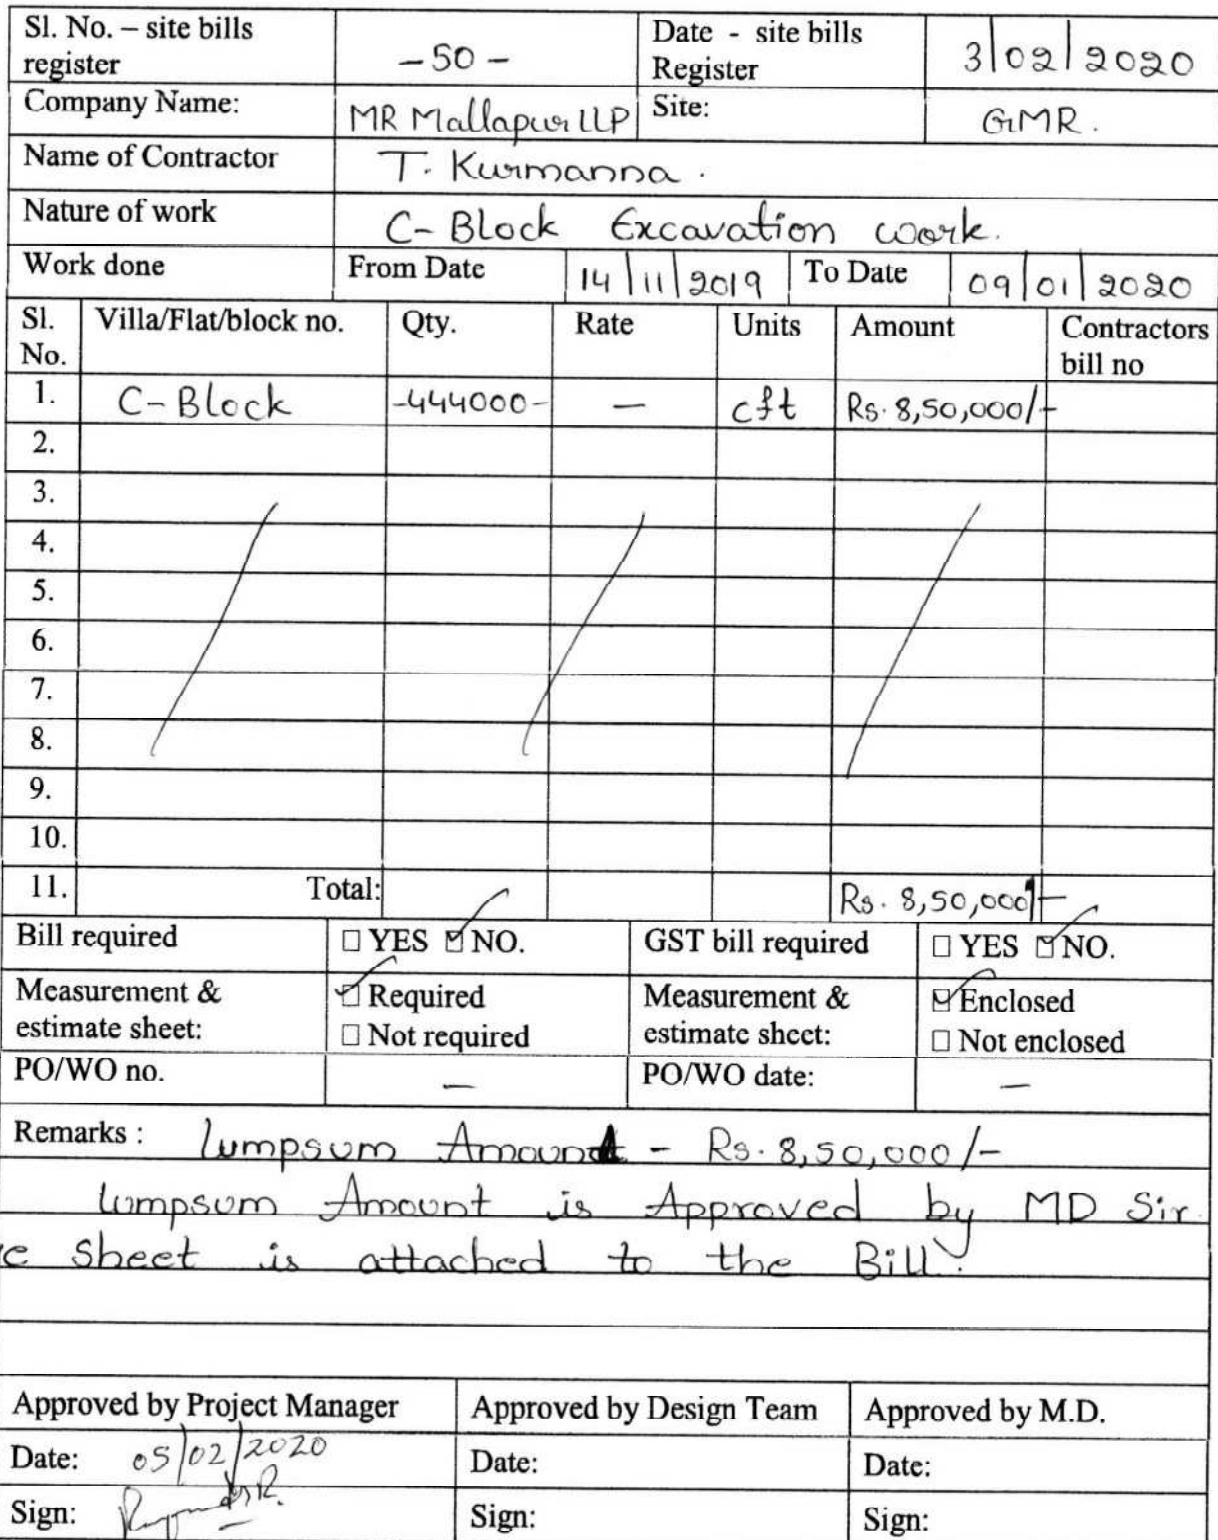 Sl. No. – site bills register -50- Date - site bills Register 3/02/2020
Company Name: MR Mallapur LLP Site: GMR.
Name of Contractor T. Kurmanna.
Nature of work C-Block Excavation work.
Work done From Date 14/11/2019 To Date 09/01/2020
Sl. No. Villa/Flat/block no. Qty. Rate Units Amount Contractors bill no
1. C-Block -444000- — cft Rs. 8,50,000/-
2.
3.
4.
5.
6.
7.
8.
9.
10.
11. Total: Rs. 8,50,000/-
Bill required ☐ YES ☑ NO. GST bill required ☐ YES ☑ NO.
Measurement & estimate sheet: ☑ Required ☐ Not required Measurement & estimate sheet: ☑ Enclosed ☐ Not enclosed
PO/WO no. — PO/WO date: —
Remarks : lumpsum Amount - Rs. 8,50,000/-
lumpsum Amount is Approved by MD Sir
sheet is attached to the Bill.
Approved by Project Manager Approved by Design Team Approved by M.D.
Date: 05/02/2020 Date: Date:
Sign: Sign: Sign: